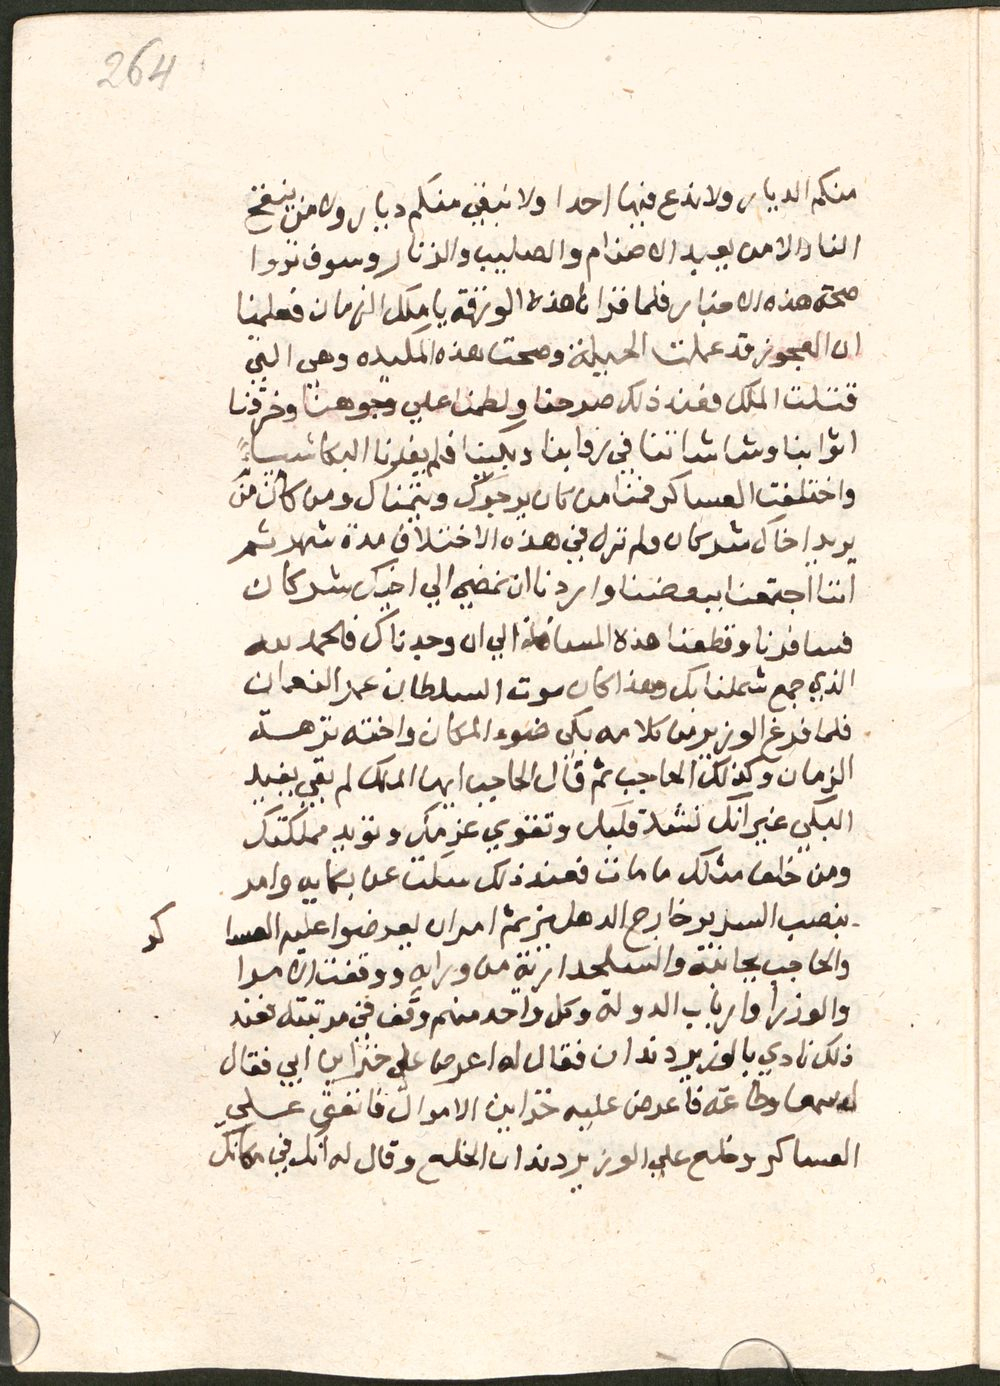 264
منكم الديار ولا ندع فيها احدا ولا نبقي منكم ديار ولا من ينفخ
النار الا من يعبد الاصنام والصليب والزنار وسوف تروا
صحة هذه الاخبار فلما قرانا هذه الورقة يا ملك الزمان فعلمنا
ان العجوز قد عملت الحيلة وصحت هذه المكيده وهي التي
قتلت الملك فعند ذلك صرخنا ولطمنا علي وجوهنا وخرقنا
اثوابنا وشاشاتنا في رقابنا وبكينا فلم يفدنا البكا شيياً
واختلفت العساكر فمنا من كان يرجوك ويتمناك ومن كان منا
يريد اخاك شركان ولم نزل في هذه الاختلاف مدة شهر ثم
اننا اجتمعنا ببعضنا واردنا ان نمضي الي اخيك شركان
فسافرنا وقطعنا هذه المسافة الي ان وجدناك فالحمد لله
الذي جمع شملنا بك وهذا كان موت السلطان عمر النعمان
فلما فرغ الوزير من كلامه بكي ضوء المكان واخته نزهة
الزمان وكذلك الحاجب ثم قال الحاجب ايها الملك لم بقي يفيد
البكي غير انك تشد قلبك وتقوي عزمك وتويد مملكتك
ومن خلف مثلك ما مات فعند ذلك سكت عن بكايه وامر
بنصب السرير خارج الدهليز ثم امر ان يعرضوا عليه العسا
كر
والحاجب بجانبه والسلحدارية من ورايه ووقفت الامرا
والوزرا وارباب الدولة وكل واحد منهم وقف في مرتبته فعند
ذلك نادي بالوزير دندان فقال له اعرض علي خزاين ابي فقال
له سمعا وطاعة فاعرض عليه خزاين الاموال فانفق علي
العساكر وخلع علي الوزير دندان الخلع وقال له انك في مكانك